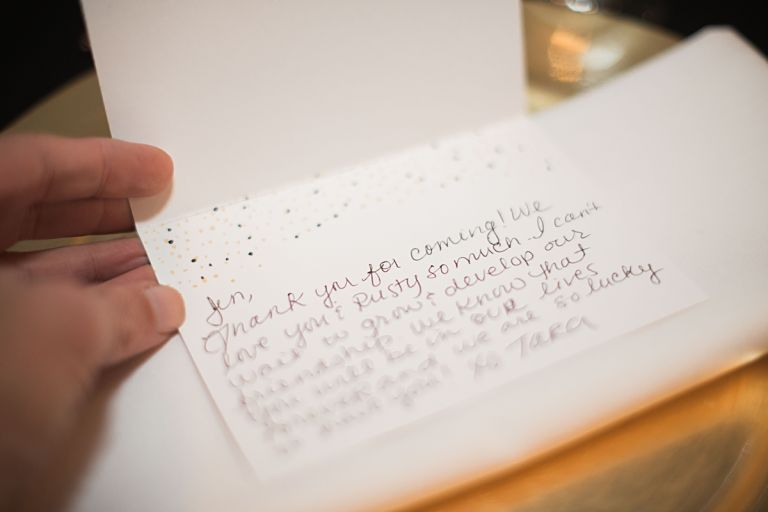 Jen,
Thank you for coming! We
love you & Rusty so much. I can't
wait to grow & develop our
friendship. We know that
you will be in our lives
forever and we are so lucky
to have you! Xo Tara